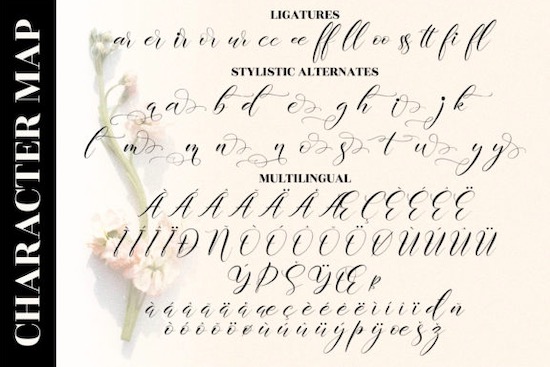 CHARACTER MAP
LIGATURES
ar er ir or ur cc ee ff ll oo ss tt fi fl
STYLISTIC ALTERNATES
q a b d e g h i j k
l m m n n o s t w y y
MULTILINGUAL
À Á Â Ã Ä Å Æ Ç È É Ê Ë
Ì Í Î Ï Ð Ñ Ò Ó Ô Õ Ö Ø Ù Ú Û Ü
Ý Þ Š Ÿ Œ
à á â ã ä å æ ç è é ê ë ì í î ï đ ñ
ò ó ô õ ö ø ù ú û ü ý þ ÿ œ š ž